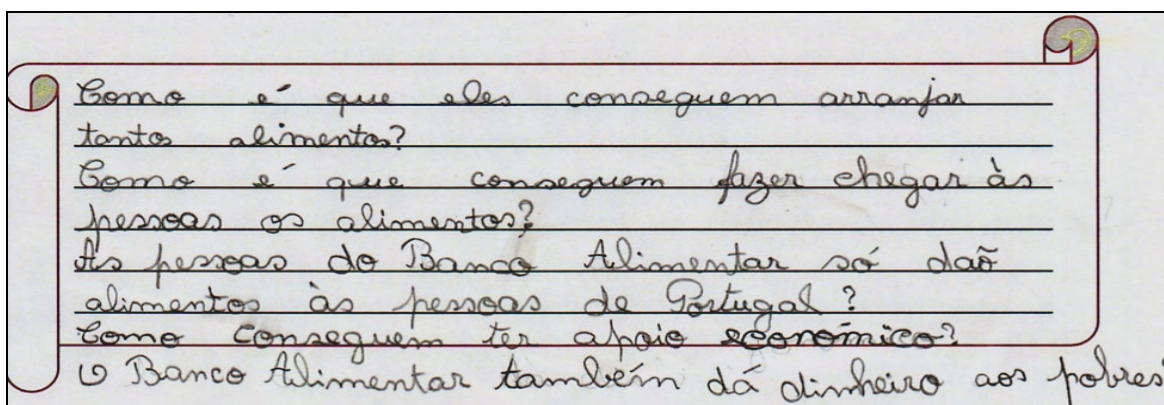 Como é que eles conseguem arranjar
tantos alimentos?
Como é que conseguem fazer chegar às
pessoas os alimentos?
As pessoas do Banco Alimentar só daõ
alimentos às pessoas de Portugal?
Como conseguem ter apoio económico?
O Banco Alimentar também dá dinheiro aos pobres